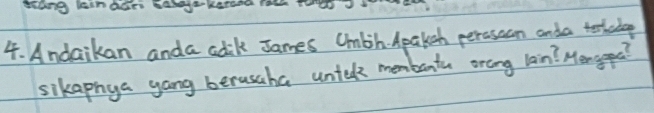 orang lain dari
4. Andaikan anda adik James Umbih. Apakah perasaan anda terhadap
sikapnya yang berusaha untuk membantu orang lain? Mengapa?